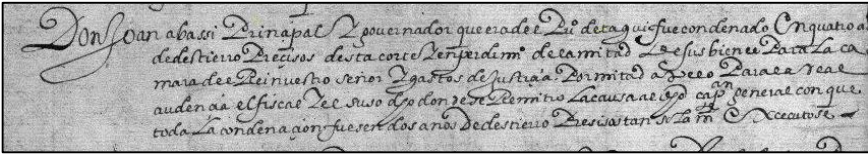 Don Joan abassi Prinçipal Y governador que era de el Puo de taguig fue condenado En quatro a
de destierro Preçisos desta corte Y en perdimo de la mitad de sus bienes Para La ca
mara de el Rei nuestro señor Y gastos de justiçia Por mitad apelo Para la real
audençia el fiscal Y el suso dho donde se Remitio La causa al dho capan general con que
toda La condenaçion fuesen dos anos de destierro Presisos tan solamte Executose